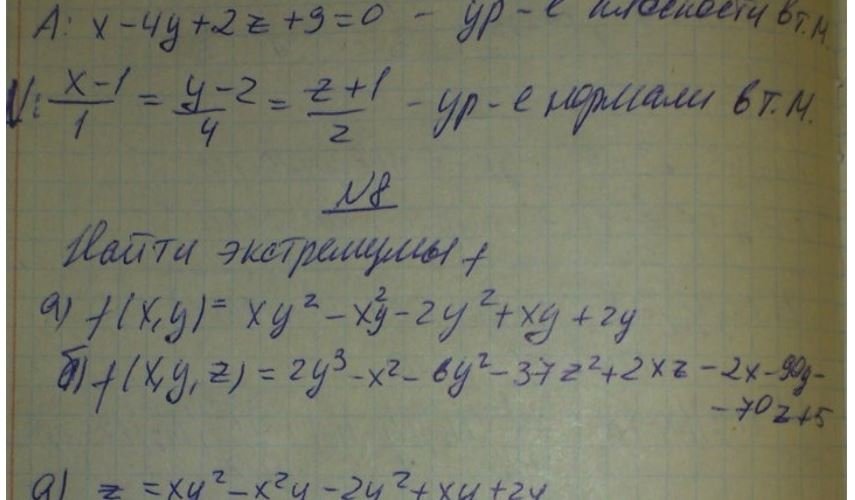 A: x-4y+2z+9=0 - ур-е плоскости в т. М.
N: (x-1)/1 = (y-2)/4 = (z+1)/2 - ур-е нормали в т. М.
N8
Найти экстремумы f
а) f(x,y)= xy²-x²y-2y²+xy+2y
б) f(x,y,z)= 2y³-x²-6y²-37z²+2xz-2x-90y-
-70z+5
а) z = xy²-x²y-2y²+xy+2y